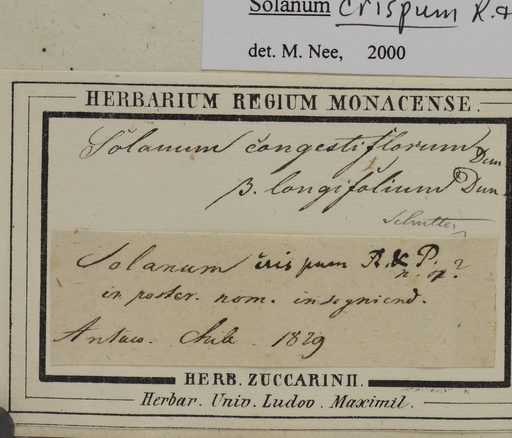 Solanum crispum R. &
det. M. Nee, 2000
HERBARIUM REGIUM MONACENSE.
Solanum congestiflorum Dun
β. longifolium Dun.
Solanum crispum R. & P.
n. sp?
in poster. nom. insigniend.
Antaco. Chile. 1829
HERB. ZUCCARINII.
Herbar. Univ. Ludov. Maximil.